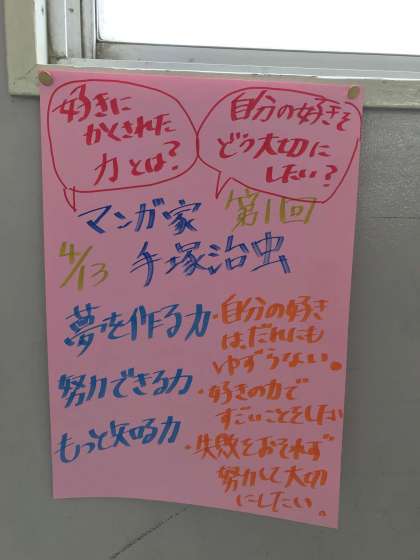 好きに
かくされた
力とは?
自分の好きを
どう大切に
したい?
マンガ家 第11回
4/13 手塚治虫
夢を作る力
努力できる力
もっと知る力
・自分の好き
はだれにも
ゆずらない。
・好きの力で
すごいことをしたい
・失敗をおそれず
努力して大切
にしたい。